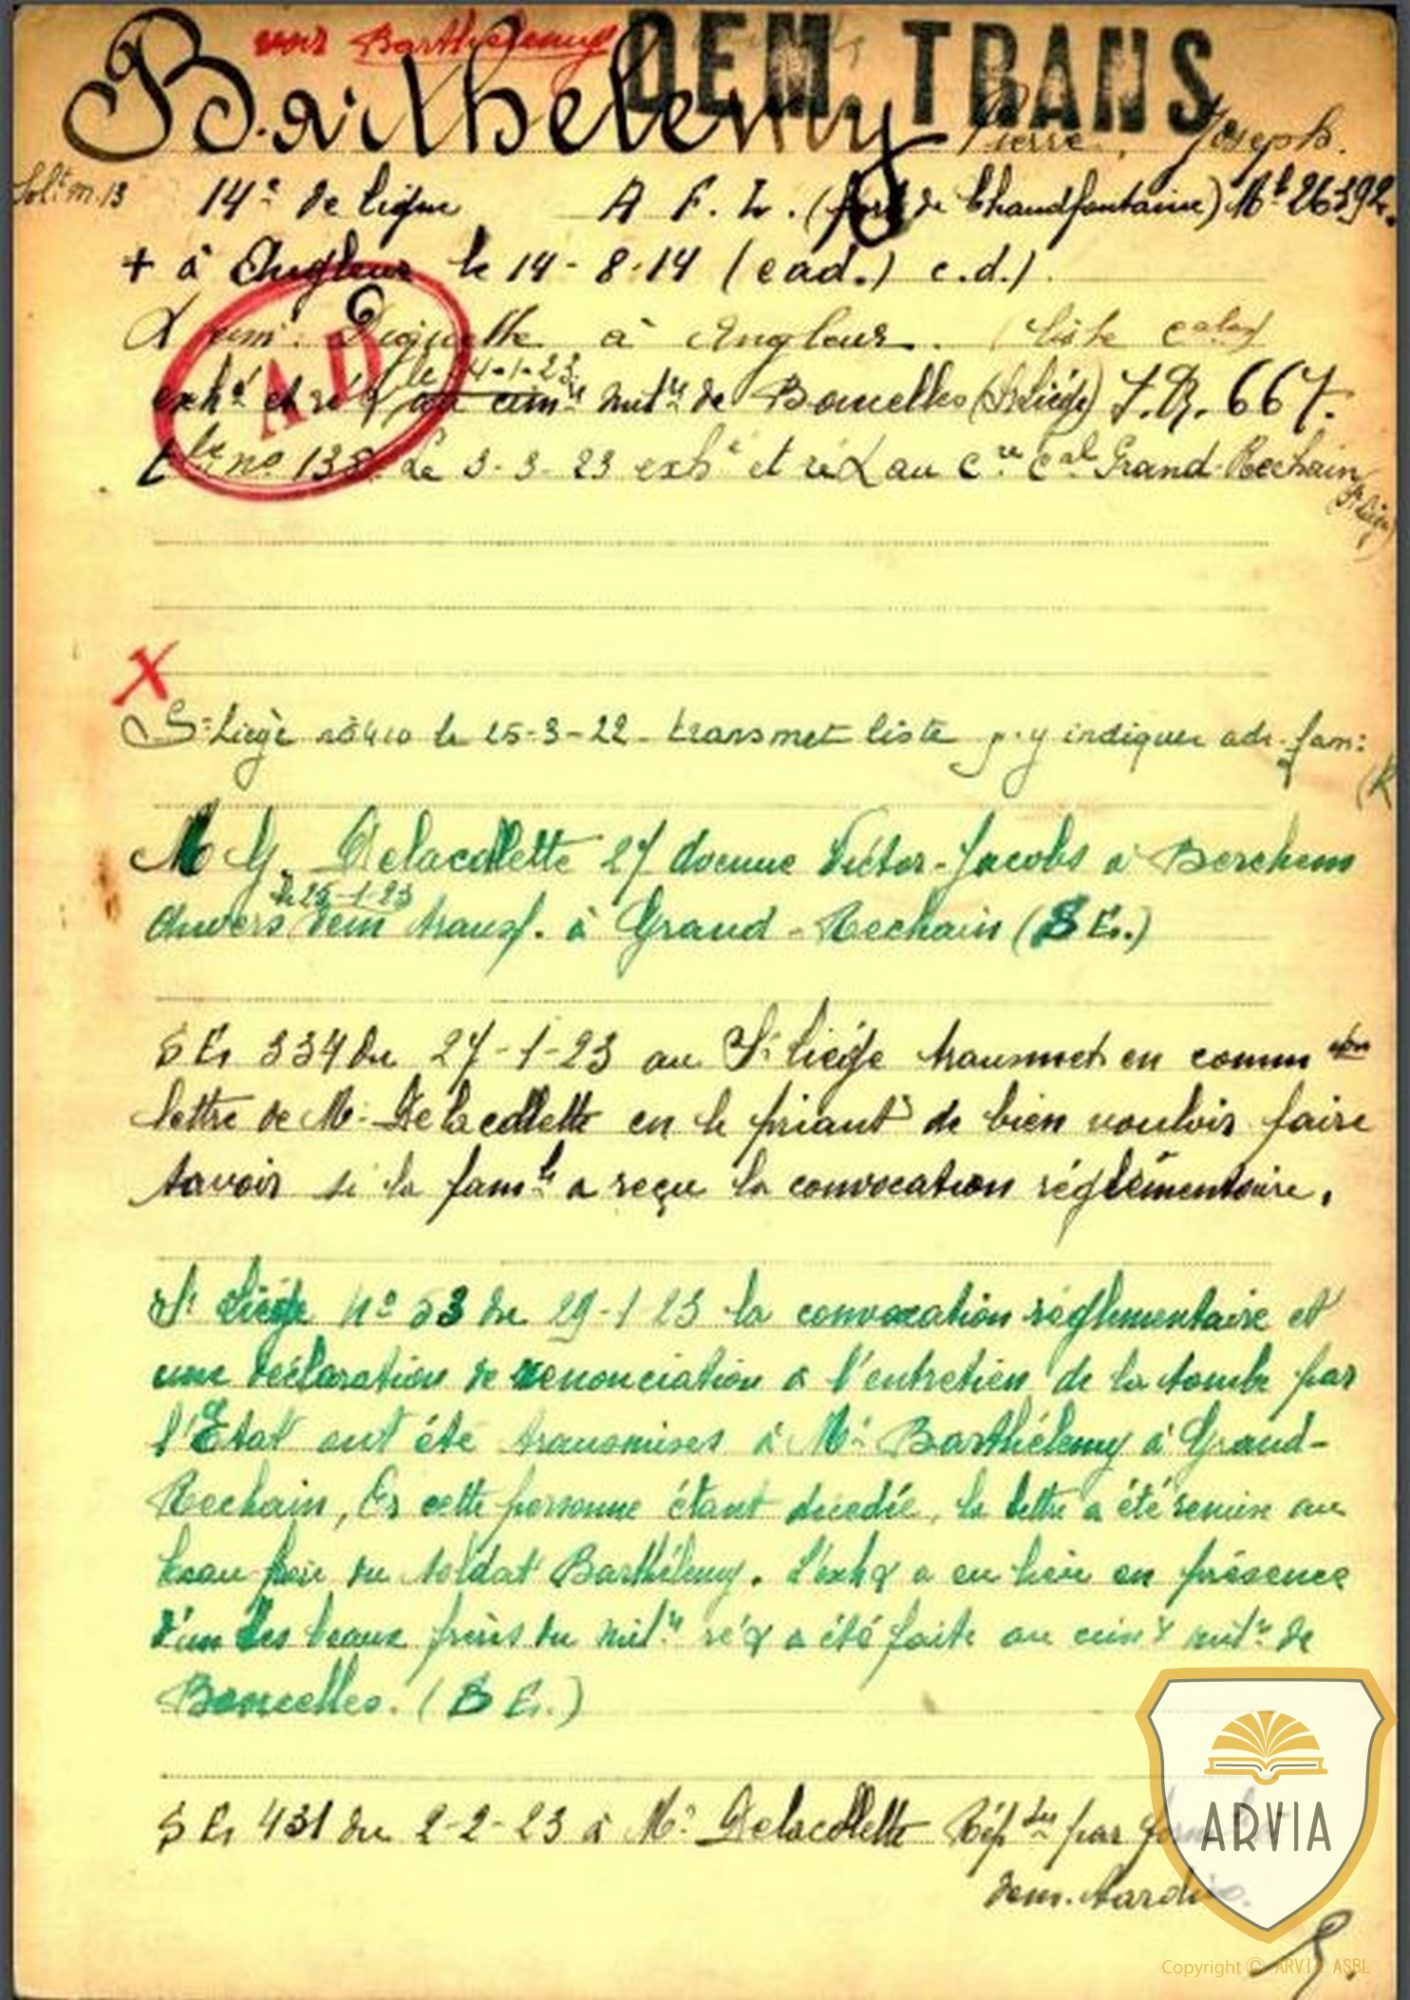 voir Barthélemy DEM. TRANS
Barthélemy Pierre, Joseph.
Solt m. 13 14e de ligne A F. L. (fort de Chaudfontaine) Mle 26392.
+ à Angleur le 14-8-14 (cad.) c.d.)
cimre Diguette à Angleur. (liste cale)
AD
le 4-1-23
exhé et ré au cimre milre de Boncelles (St Liége) T.R. 667.
tbe no 138. Le 3-3-23 exhé et ré au cre cal Grand-Rechain
(St Liége)
X
St Liège no 410 le 25-3-22 - transmet liste p. y indiquer adr. fam:
(R
Mr G. Delacollette 27 avenue Victor-Jacobs à Berchem
le 25-1-23
Anvers dem transf. à Grand-Rechain (S Er.)
S Er 334 du 27-1-23 au St Liége transmet en comm
lettre de Mr Delacollette en le priant de bien vouloir faire
savoir si la famle a reçu la convocation réglémentaire.
St Liége No 53 du 29-1-23 la convocation réglementaire et
une déclaration de renonciation à l'entretien de la tombe par
l'Etat ont été transmises à Mr Barthélemy à Grand-
Rechain, Er cette personne étant décédée, la lettre a été remise au
beau-père du soldat Barthélemy. L'exh a eu lieu en présence
d'un des beaux frères du milre ré a été faite au cimre milre de
Boncelles. (S Er.)
S Er 431 du 2-2-23 à Mr Delacollette Rép due par
dem.
ARVIA
Copyright © ARVIA ASBL